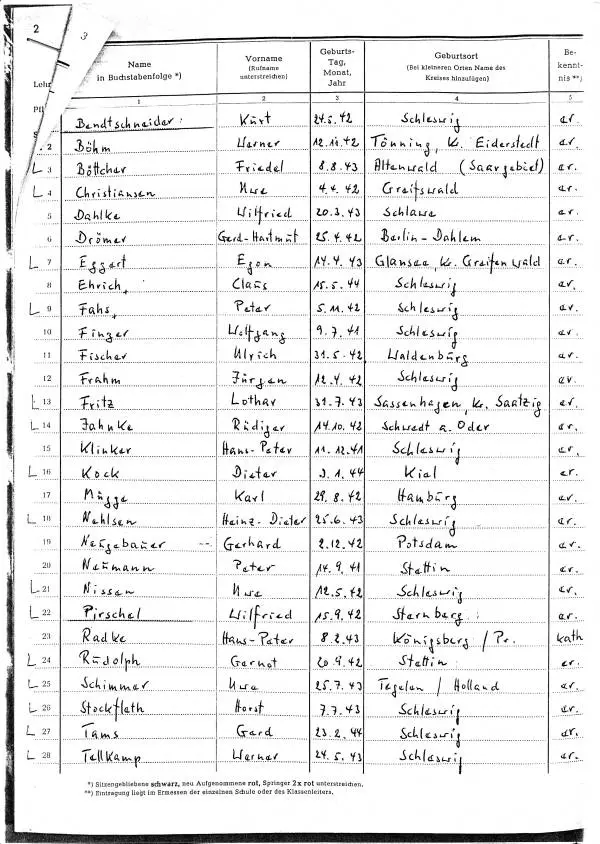 2
3
Name
in Buchstabenfolge *)
Vorname
(Rufname
unterstreichen)
Geburts-
Tag,
Monat,
Jahr
Geburtsort
(Bei kleineren Orten Name des
Kreises hinzufügen)
Be-
kennt-
nis **)
Lehr
1 2 3 4 5
Bendtschneider Kurt 24.5.42 Schleswig ev.
2 Böhm Werner 12.11.42 Tönning, Kr. Eiderstedt ev.
L 3 Böttcher Friedel 8.8.43 Altenwald (Saargebiet) ev.
L 4 Christiansen Uwe 4.4.42 Greifswald ev.
5 Dahlke Wilfried 20.3.43 Schlawe ev.
6 Drömer Gerd-Hartmut 25.4.42 Berlin-Dahlem ev.
L 7 Eggert Egon 14.4.43 Glansee, Kr. Greifenwald ev.
8 Ehrich Claus 15.5.44 Schleswig ev.
L 9 Fahs Peter 5.11.42 Schleswig ev.
10 Finger Wolfgang 9.7.41 Schleswig ev.
11 Fischer Ulrich 31.5.42 Waldenburg ev.
12 Frahm Jürgen 12.4.42 Schleswig ev.
L 13 Fritz Lothar 31.7.43 Sassenhagen, Kr. Saatzig ev.
L 14 Jahnke Rüdiger 14.10.42 Schwedt a. Oder ev.
15 Klinker Hans-Peter 11.12.41 Schleswig ev.
L 16 Kock Dieter 3.1.44 Kiel ev.
17 Mügge Karl 29.8.42 Hamburg ev.
L 18 Nehlsen Heinz-Dieter 25.6.43 Schleswig ev.
19 Neugebauer Gerhard 2.12.42 Potsdam ev.
20 Neumann Peter 14.9.41 Stettin ev.
L 21 Nissen Uwe 12.5.42 Schleswig ev.
L 22 Pirschel Wilfried 15.9.42 Sternberg ev.
23 Radke Hans-Peter 8.2.43 Königsberg / Pr. kath
L 24 Rudolph Gernot 20.9.42 Stettin ev.
L 25 Schimmer Uwe 25.7.43 Tegelen / Holland ev.
L 26 Stockfleth Horst 7.7.43 Schleswig ev.
L 27 Tams Gerd 23.2.44 Schleswig ev.
L 28 Tellkamp Werner 24.5.43 Schleswig ev.
*) Sitzengebliebene schwarz, neu Aufgenommene rot, Springer 2 x rot unterstreichen.
**) Eintragung liegt im Ermessen der einzelnen Schule oder des Klassenleiters.